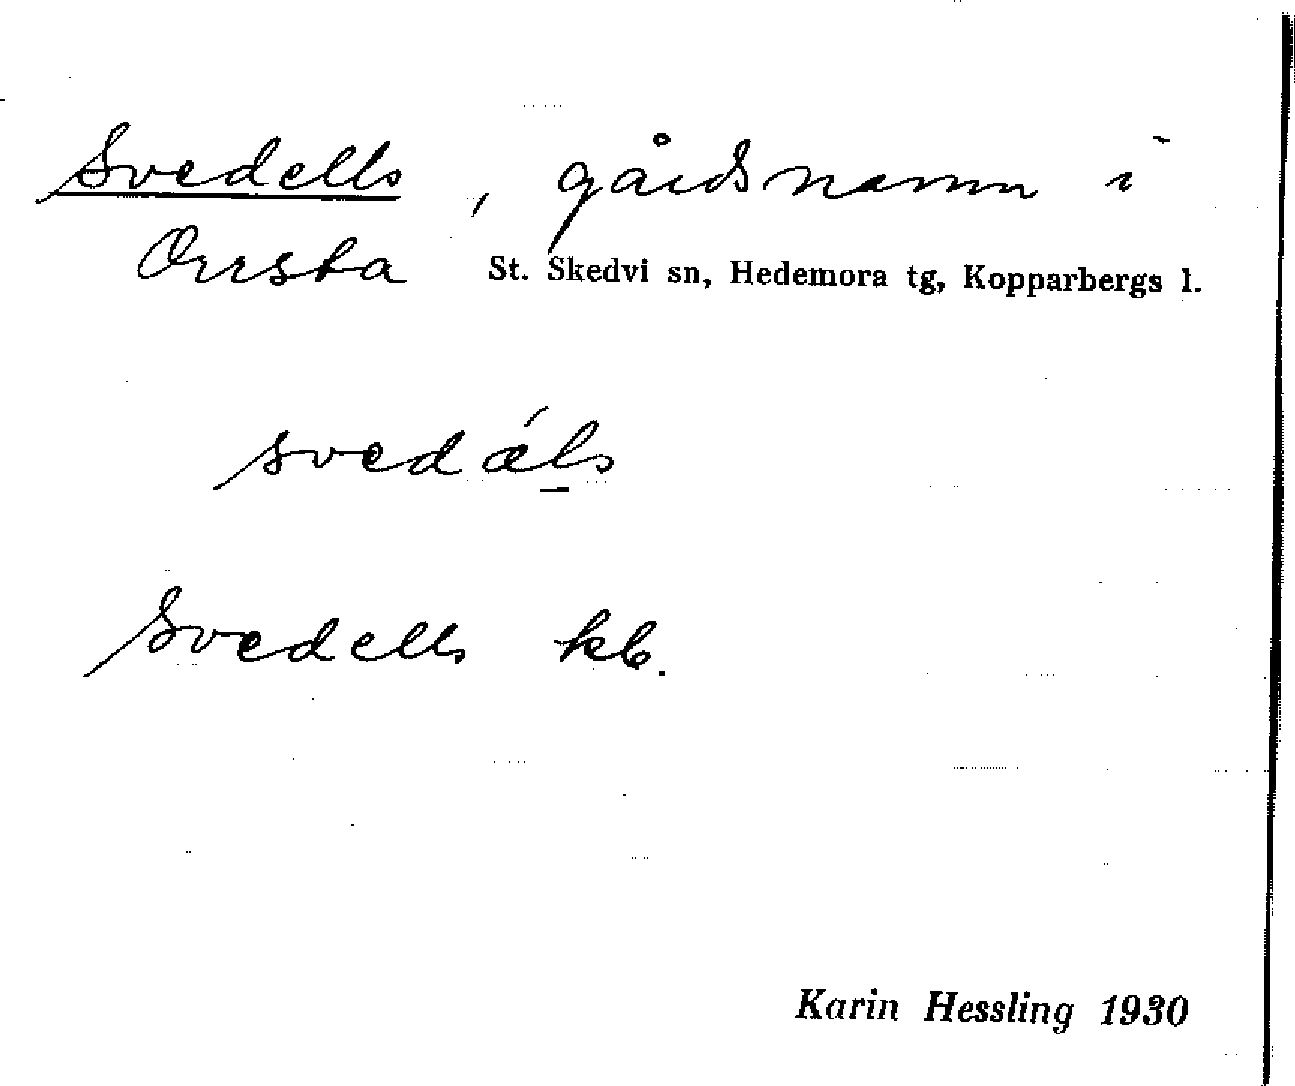 Svedells, gårdsnamn i
Orrsta St. Skedvi sn, Hedemora tg, Kopparbergs l.
svedǽls
Svedells kb.
Karin Hessling 1930